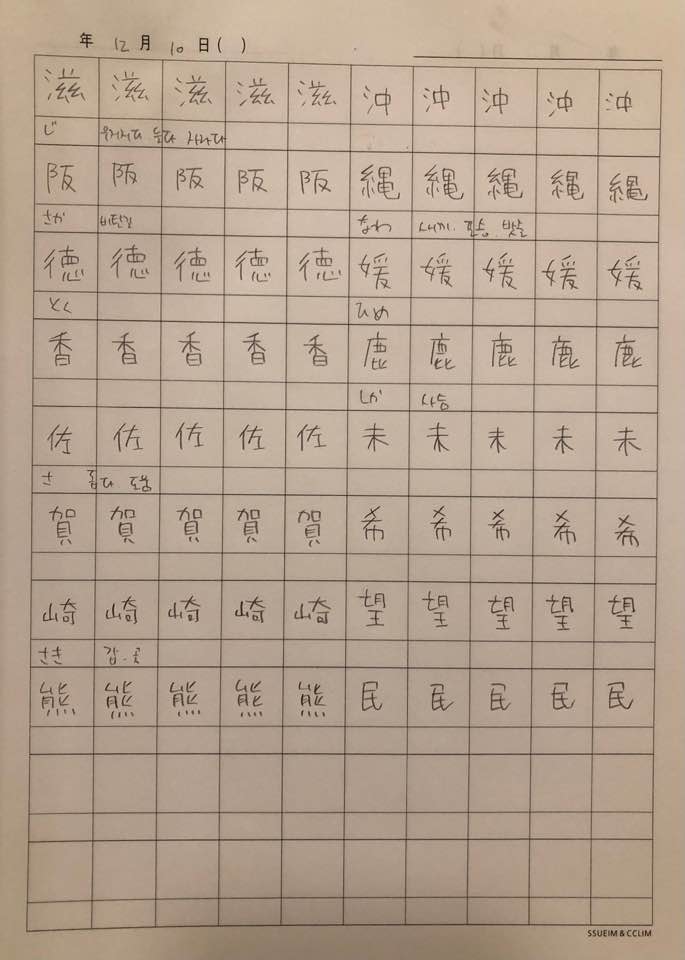 年 12 月 10 日 ( )
滋 滋 滋 滋 滋 沖 沖 沖 沖 沖
じ 우거지다 늘다 자라다
阪 阪 阪 阪 阪 縄 縄 縄 縄 縄
さか 비탈길 なわ 새끼. 포승. 밧줄
徳 徳 徳 徳 徳 媛 媛 媛 媛 媛
とく ひめ
香 香 香 香 香 鹿 鹿 鹿 鹿 鹿
しか 사슴
佐 佐 佐 佐 佐 未 未 未 未 未
さ 돕다 도움
賀 賀 賀 賀 賀 希 希 希 希 希
崎 崎 崎 崎 崎 望 望 望 望 望
さき 갑. 곶
熊 熊 熊 熊 熊 民 民 民 民 民
SSUEIM & CCLIM